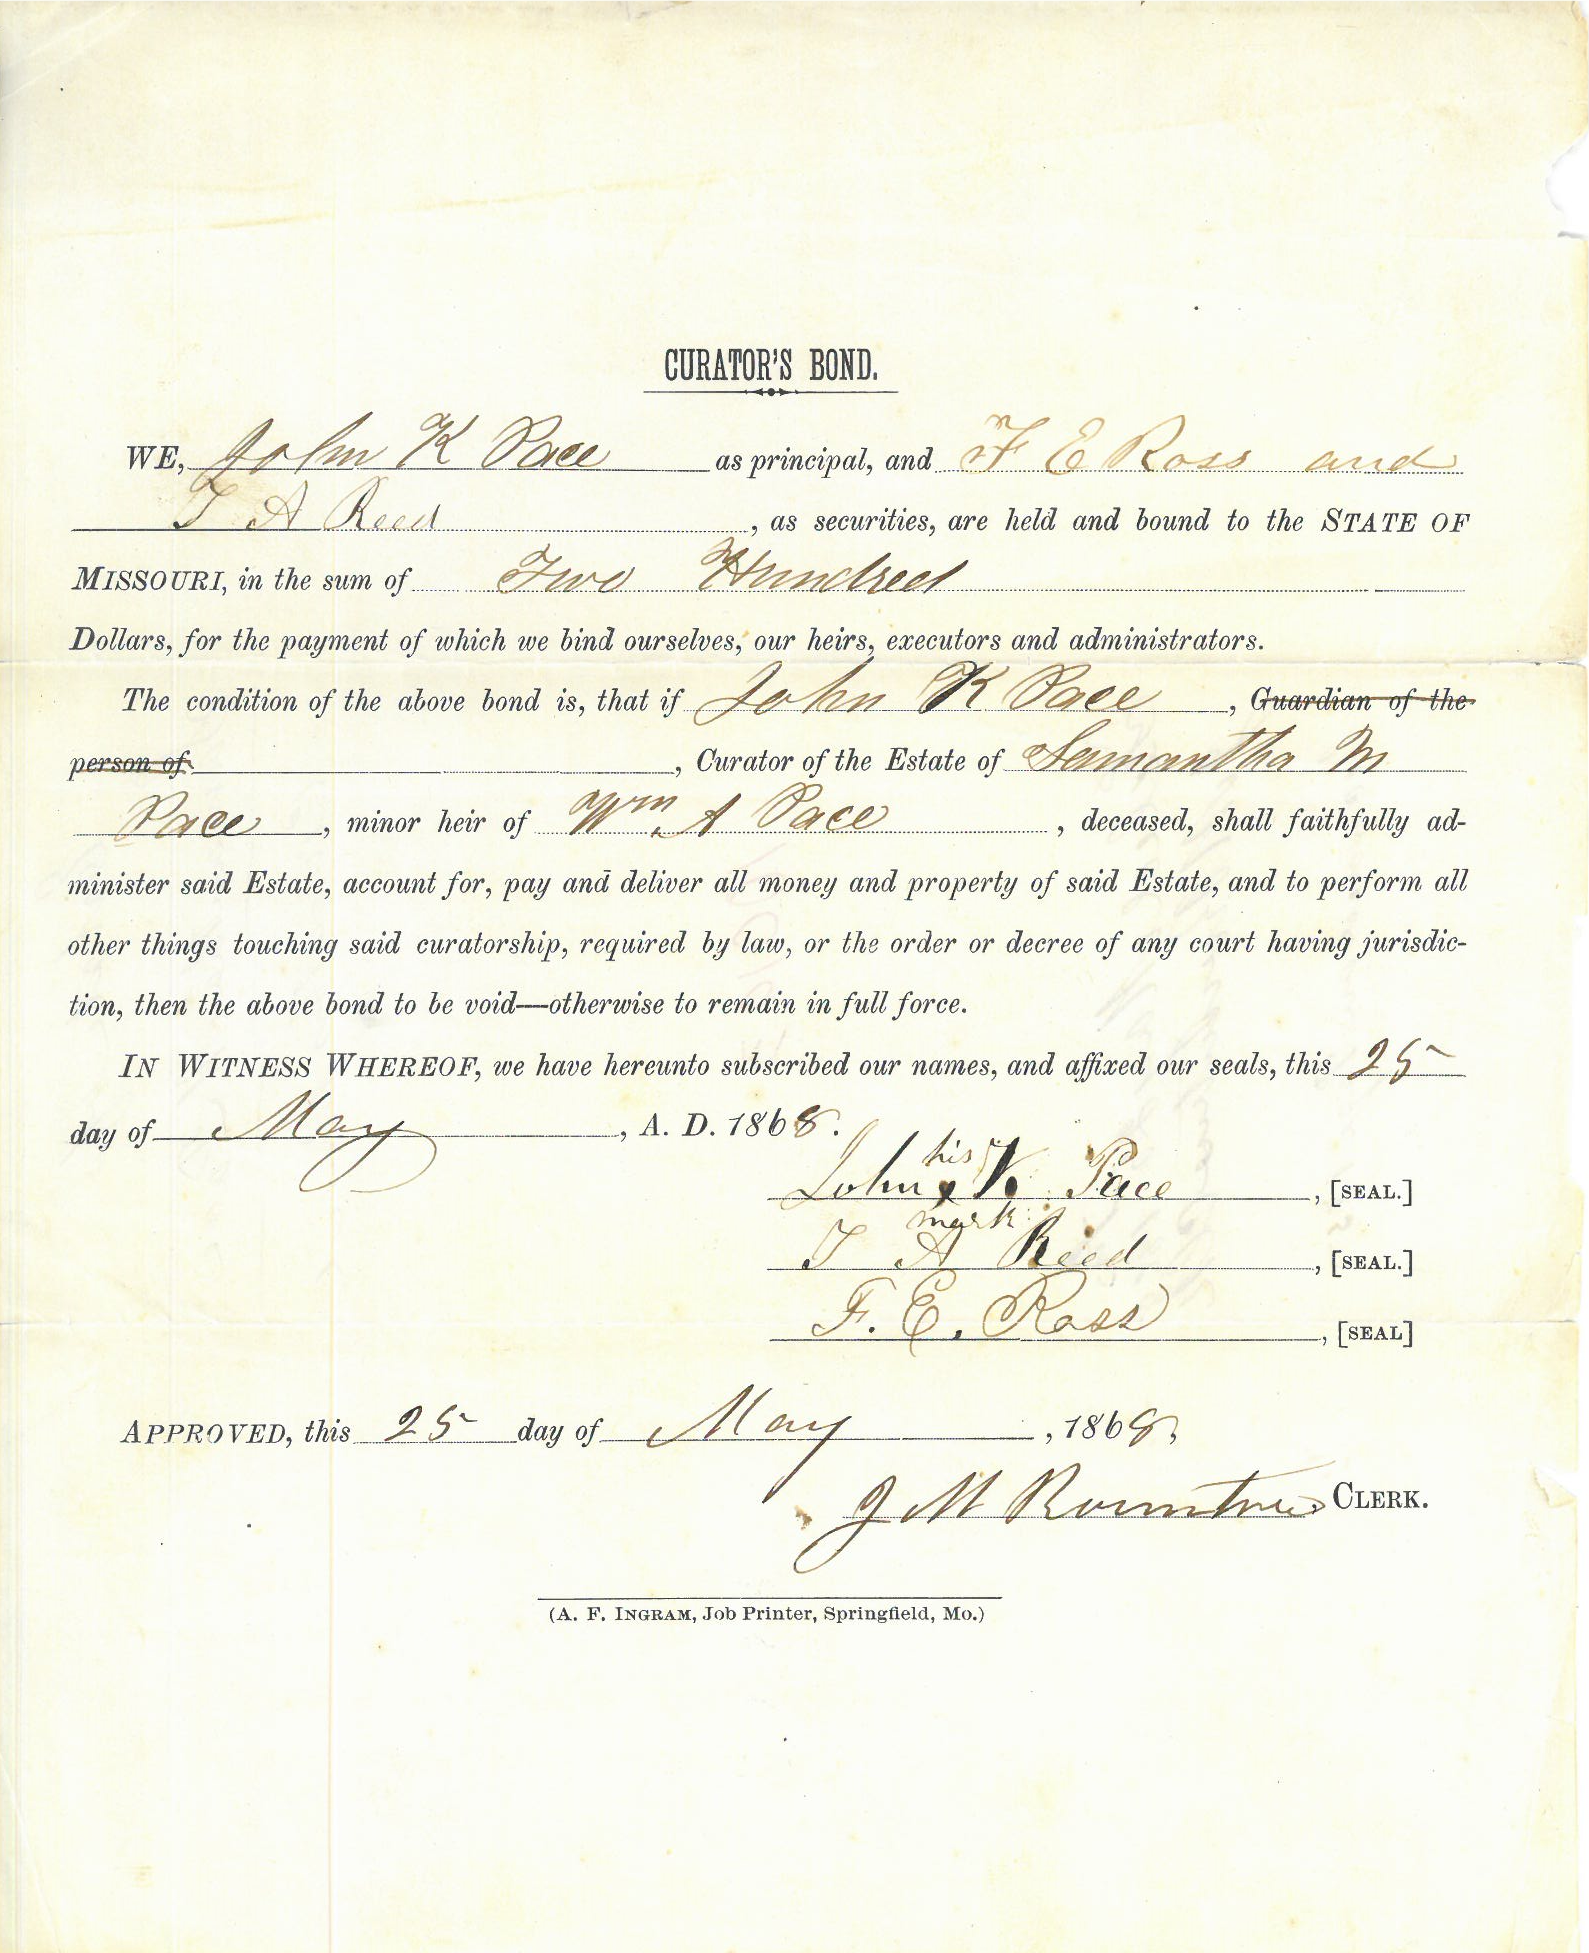 CURATOR'S BOND.
WE, John K Pace as principal, and F E Ross and
T A Reed, as securities, are held and bound to the STATE OF
MISSOURI, in the sum of Two Hundred
Dollars, for the payment of which we bind ourselves, our heirs, executors and administrators.
The condition of the above bond is, that if John K Pace, Guardian of the
person of , Curator of the Estate of Samantha M
Pace, minor heir of Wm A Pace, deceased, shall faithfully ad-
minister said Estate, account for, pay and deliver all money and property of said Estate, and to perform all
other things touching said curatorship, required by law, or the order or decree of any court having jurisdic-
tion, then the above bond to be void—otherwise to remain in full force.
IN WITNESS WHEREOF, we have hereunto subscribed our names, and affixed our seals, this 25
day of May, A. D. 1868.
his
John x K Pace, [SEAL.]
mark
T A Reed, [SEAL.]
F. E. Ross, [SEAL]
APPROVED, this 25 day of May, 1868,
J M Rountree CLERK.
(A. F. INGRAM, Job Printer, Springfield, Mo.)